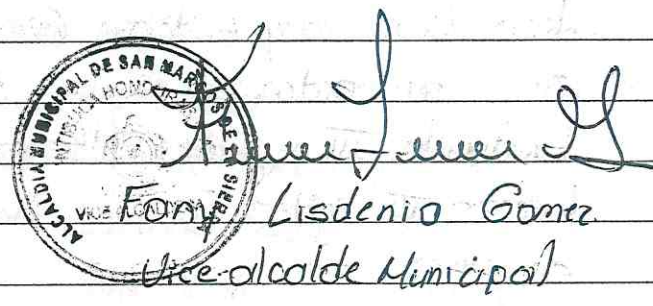 ALCALDIA MUNICIPAL DE SAN MARCOS DE LA SIERRA
INTIBUCA HONDURAS
VICE ALCALDIA
Fany Lisdenia Gomez
Vice-alcalde Municipal